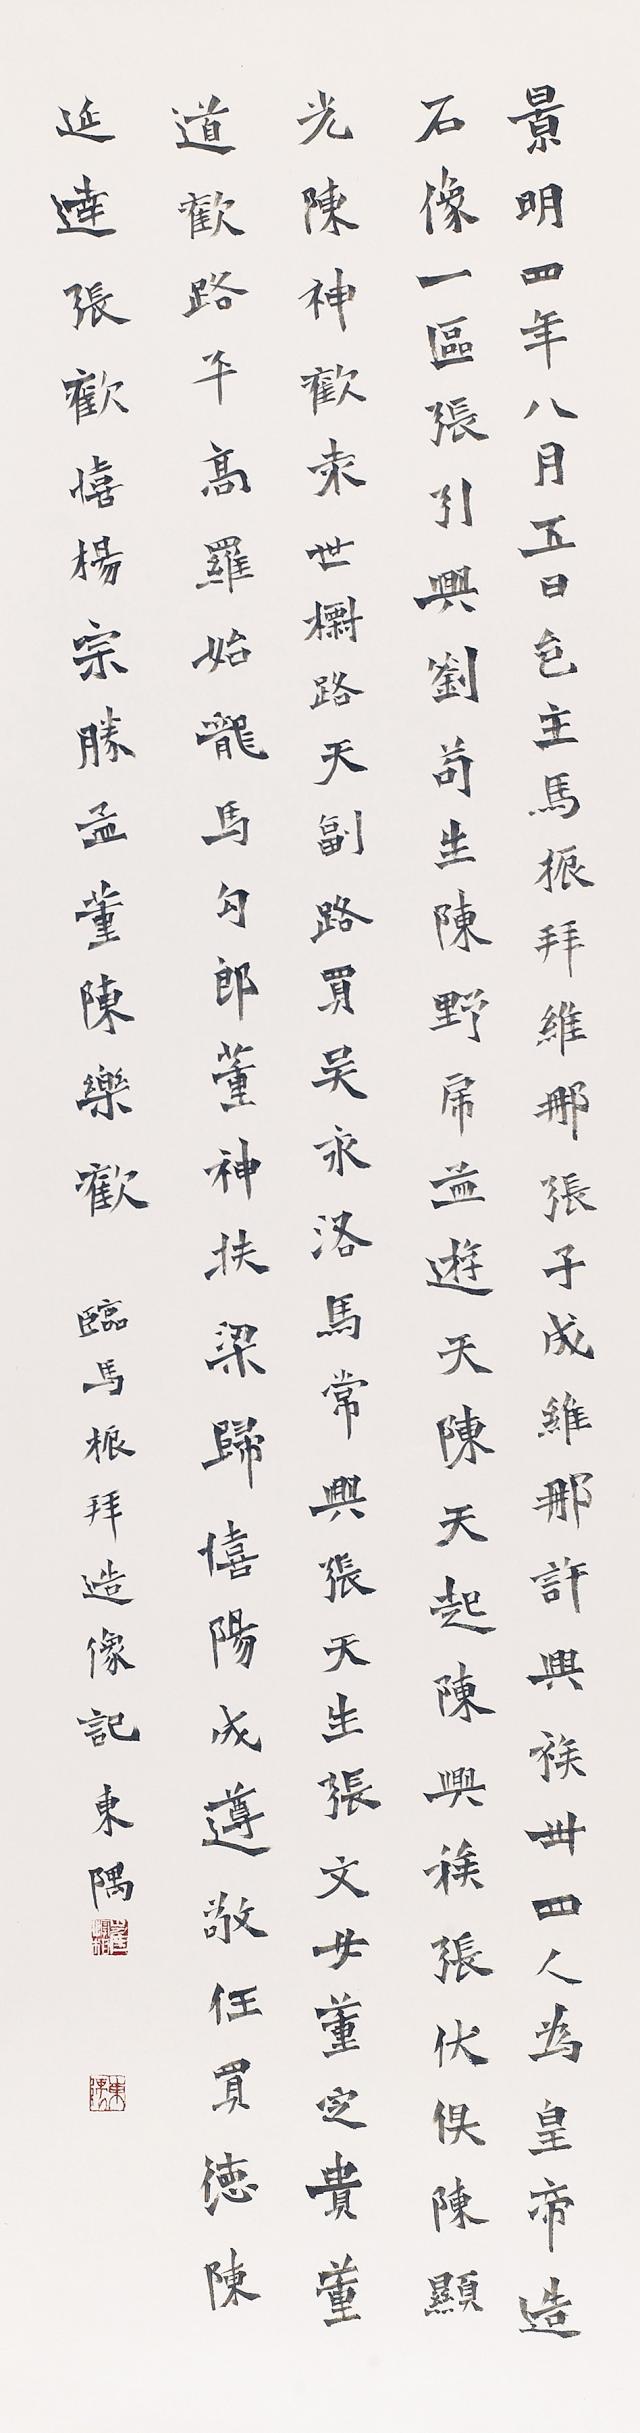 景明四年八月五日邑主馬振拜維那張子成維那許興族卅四人為皇帝造
石像一區張引興劉苟生陳野虎益遊天陳天起陳興族張伏俱陳顯
光陳神歡朱世樹路天副路買吴永洛馬常興張天生張文女董定貴董
道歡路平高羅始龍馬勾郎董神扶梁歸憘陽成遵敬任買德陳
延達張歡憘楊宗勝孟董陳樂歡 臨馬振拜造像記 東隅